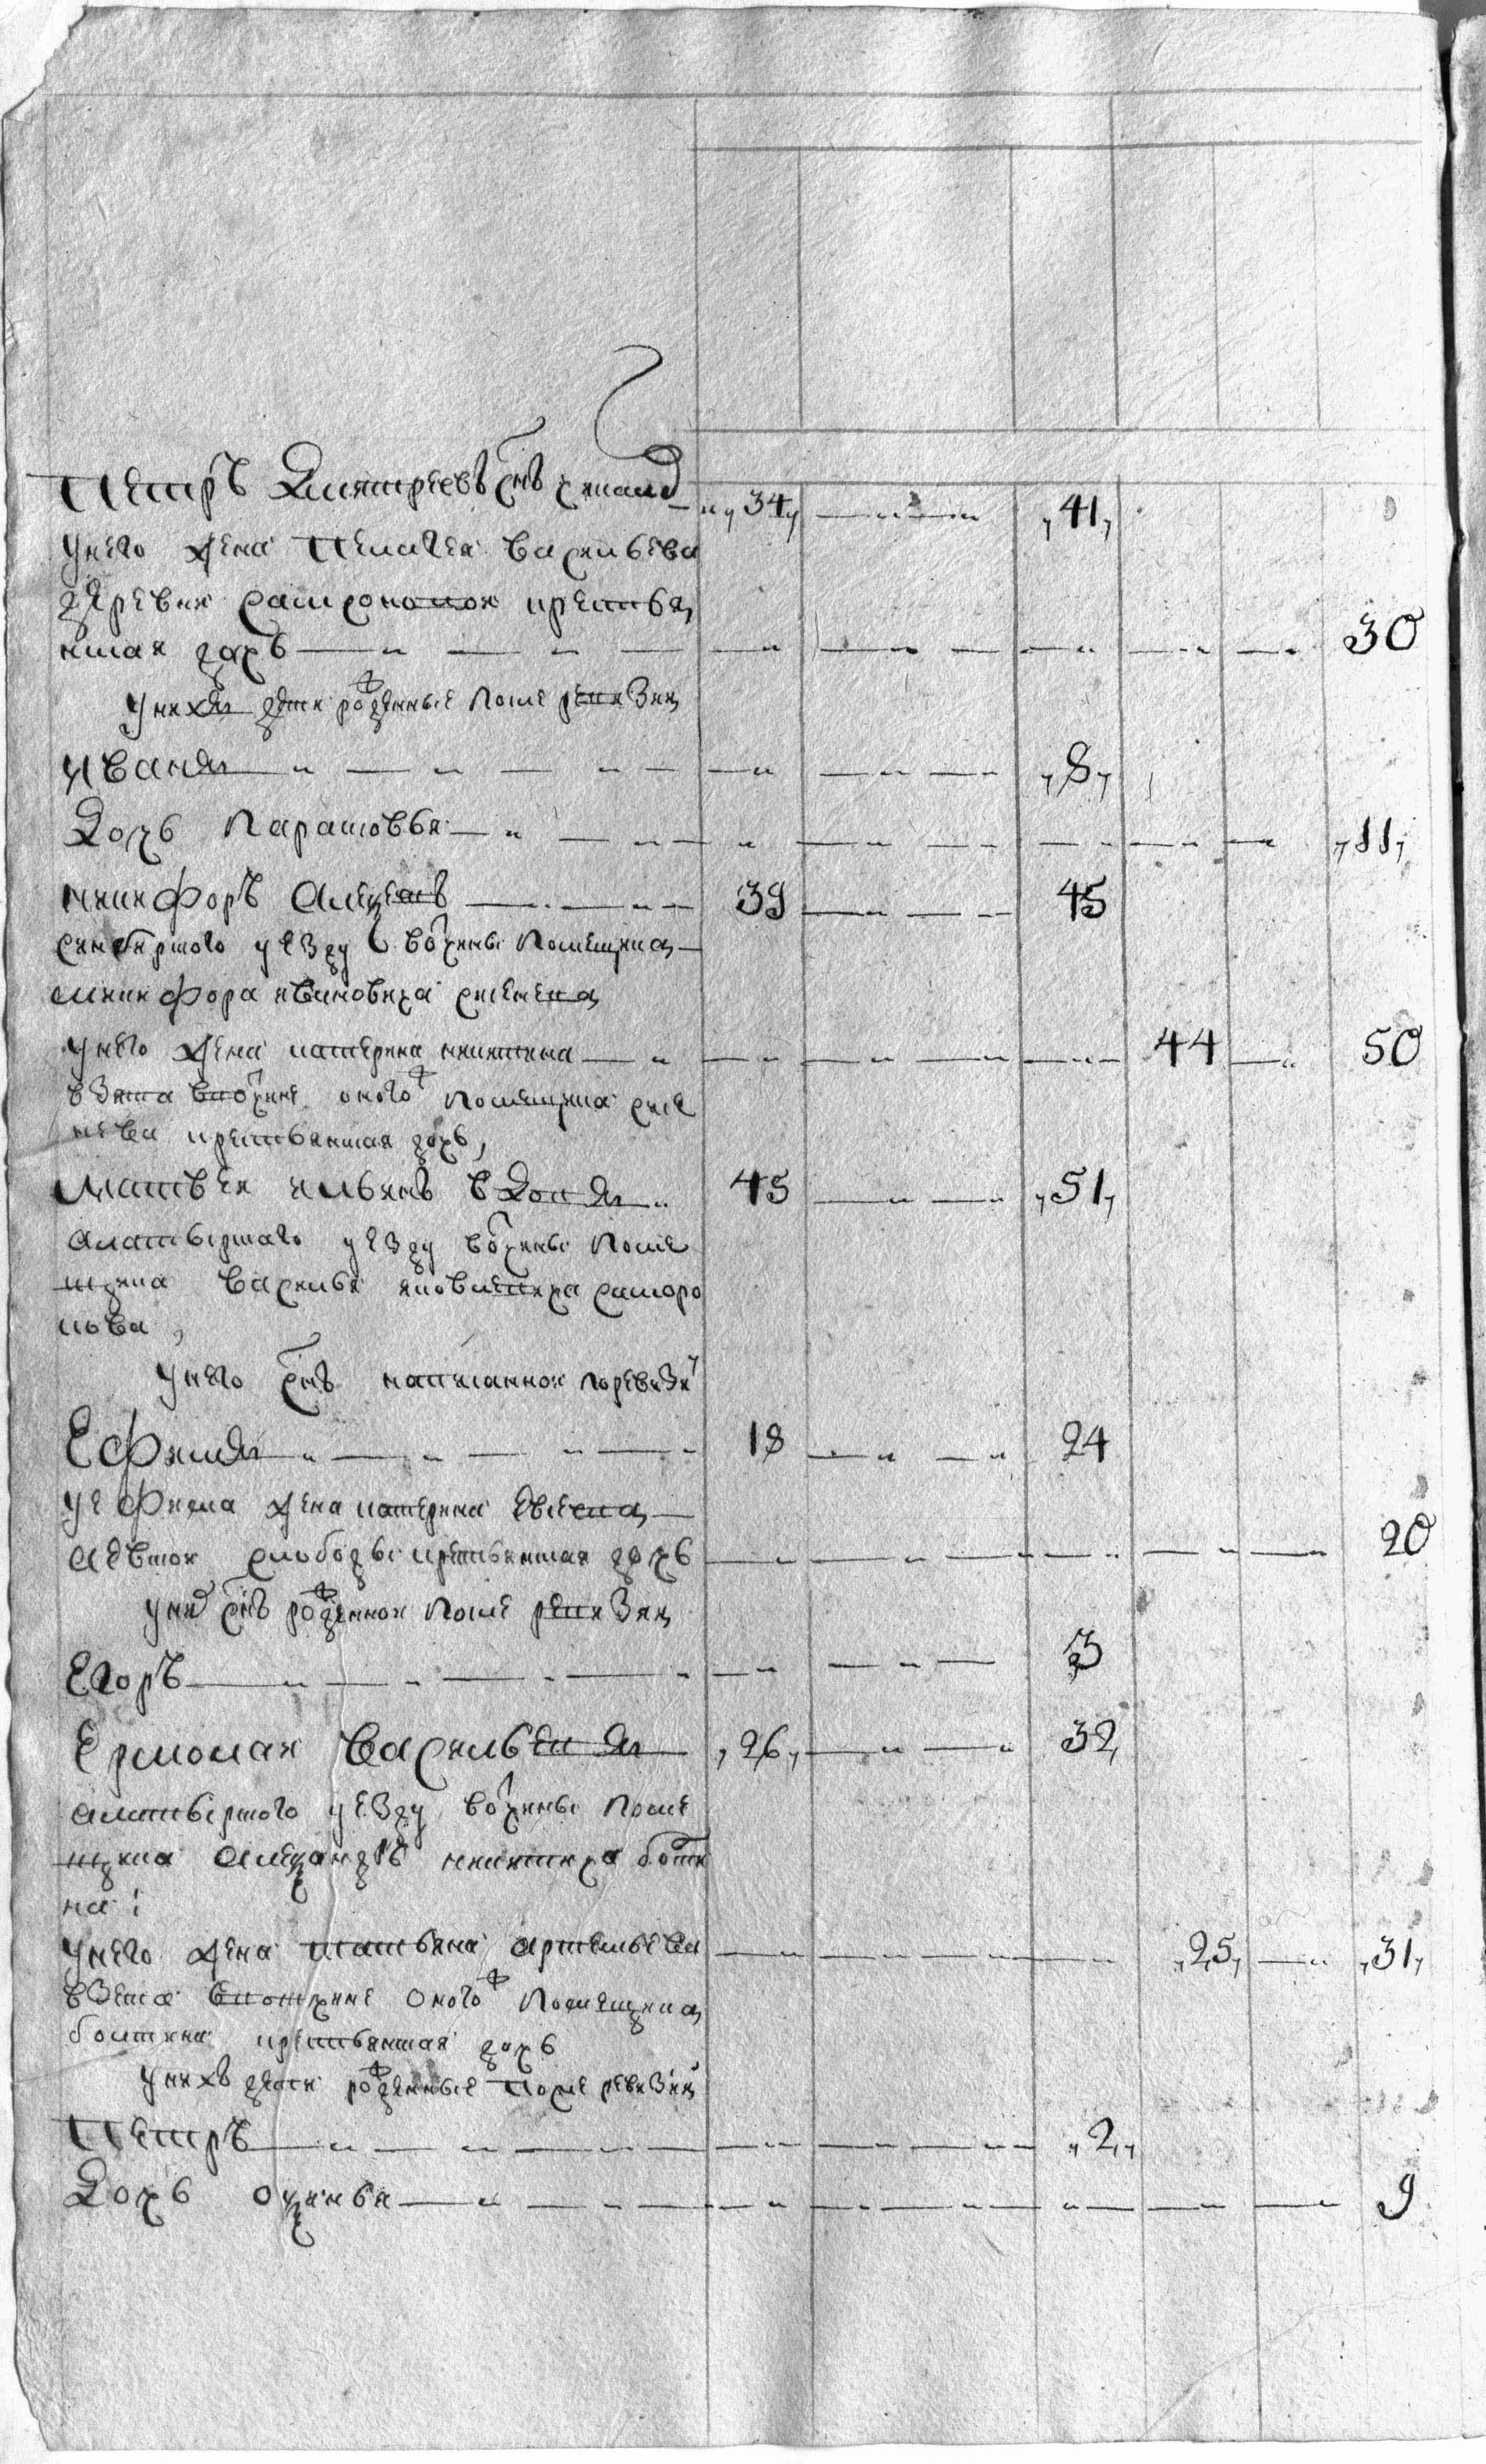 Петръ Дмитреевъ снъ 34 41
унего жена Пелагея васильева
деревни крестья
нская дочь 30
унихъ дети рожденные после ревизии
иванъ 8
Дочь Парасковья 11
никифоръ Алексеевъ 39 45
синбирского уезду вотчины помещика
никифора ивановича
унего жена катерина никитина 44 50
взята вотчине оного помещика
крестьянская дочь,
матвеи 45 51
алатырскаго уезду вотчины поме
щика василья яковлевича
унего снъ написанной поревизи
Ефимъ 18 24
уефима жена катерина
слободы крестьянская дочь 20
унихъ снъ рожденной после ревизии
Егоръ 3
Ермолаи васильевъ 26 32
алатырского уезду вотчины поме
щика александръ никитича болти
на
унего жена татьяна артемьева 25 31
взета вотчине оного помещика
болтина крестьянская дочь
унихъ дети рожденные после ревизии
Петръ 2
Дочь оксинья 9